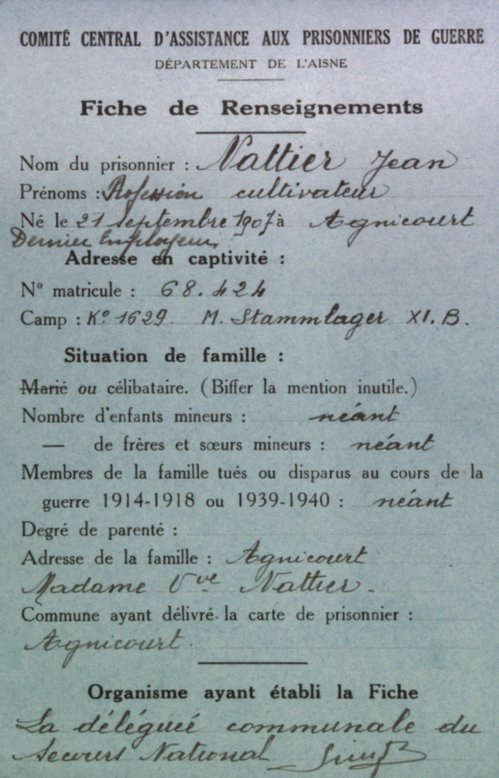 COMITÉ CENTRAL D'ASSISTANCE AUX PRISONNIERS DE GUERRE
DÉPARTEMENT DE L'AISNE
Fiche de Renseignements
Nom du prisonnier : Nattier Jean
Prénoms : Profession cultivateur
Né le 21 septembre 1907 à Agnicourt
Dernier Employeur
Adresse en captivité :
N° matricule : 68.424
Camp : K° 1629 M. Stammlager XI. B.
Situation de famille :
Marié ou célibataire. (Biffer la mention inutile.)
Nombre d'enfants mineurs : néant
— de frères et sœurs mineurs : néant
Membres de la famille tués ou disparus au cours de la
guerre 1914-1918 ou 1939-1940 : néant
Degré de parenté :
Adresse de la famille : Agnicourt
Madame Vve Nattier.
Commune ayant délivré la carte de prisonnier :
Agnicourt.
Organisme ayant établi la Fiche
La déléguée communale du
Secours National